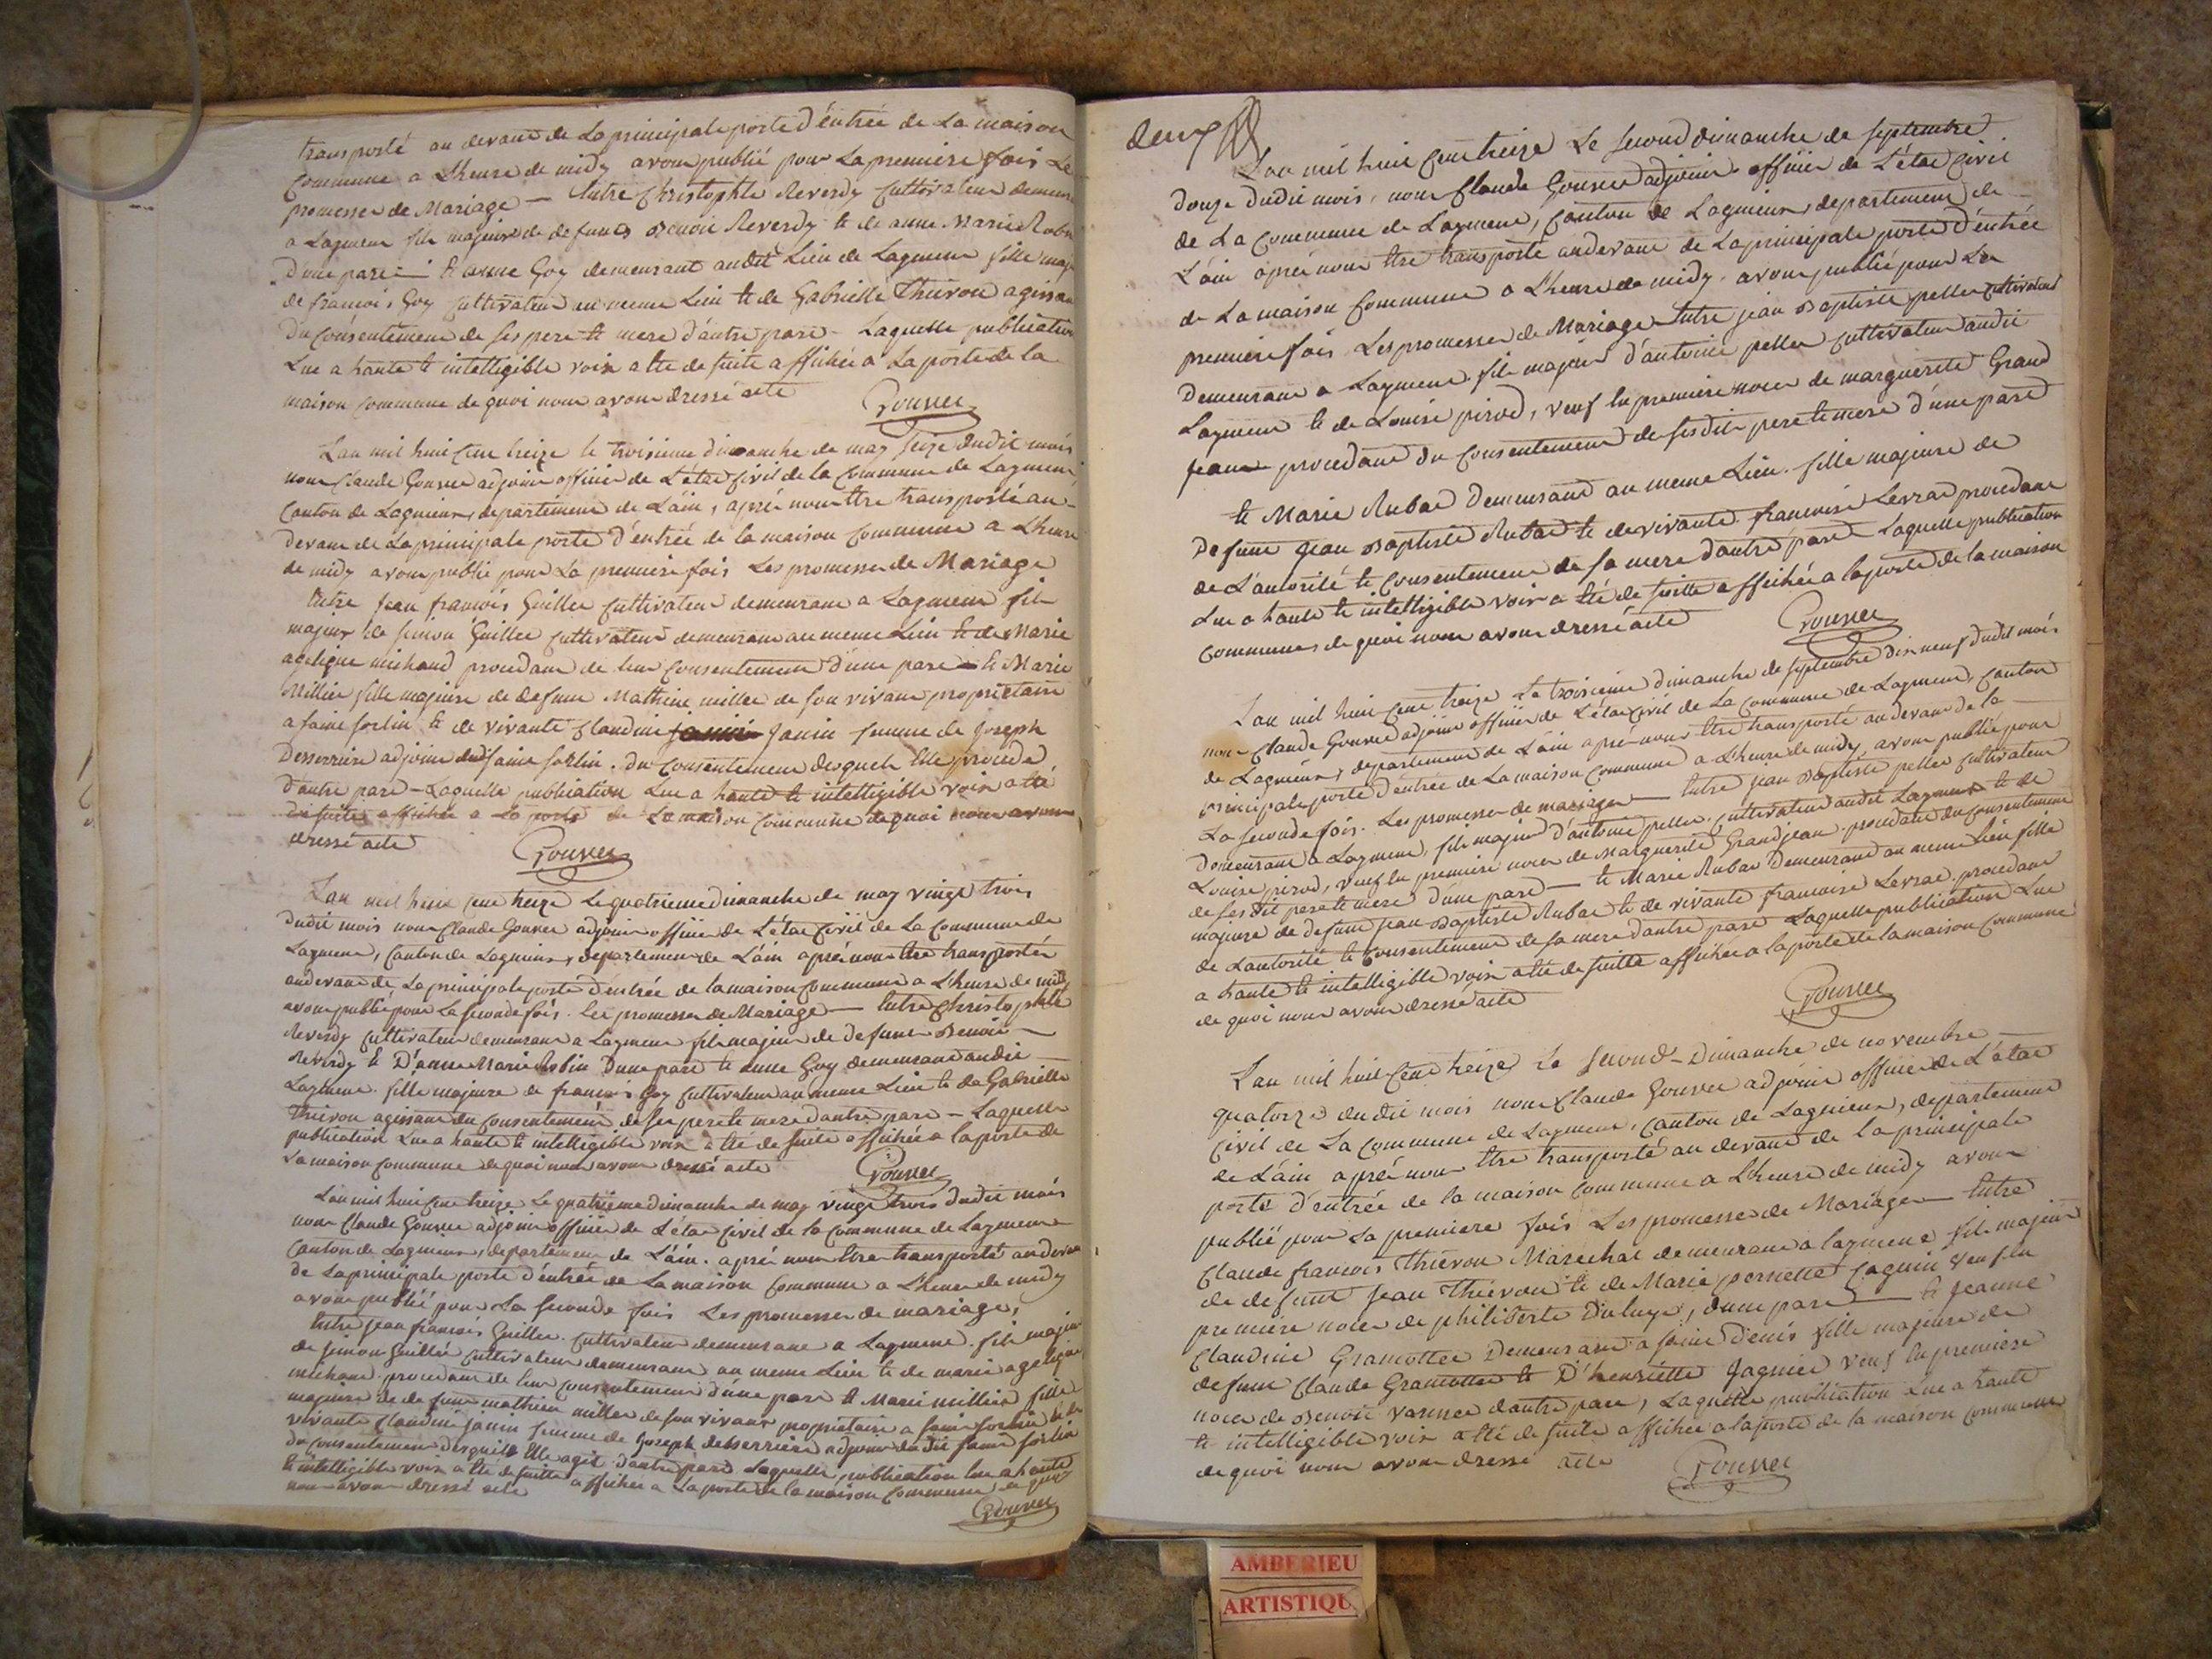 transporté au devant de La principale porte d'éntrée de La maison
Commune a L'heure de midy avons publié pour La premiere fois Les
promesses de Mariage — Entre Christophle Reverdy Cultivateur demeurant
a Lagnieu fils majeur de defuncts Benoit Reverdy et de anne Marie Robin
D'une part — et anne Goy demeurant audit Lieu de fille maj
de francois Goy Cultivateur au meme Lieu et de Gabrielle Thievon agissant
Du Consentement de ses pere et mere d'autre part — Laquelle publication
Lue a haute et intelligible voix a été de suite affichée a La porte de la
maison Commune de quoi nous avons dressé acte
L'an mil huit Cent treize le troisieme dimanche de may seize dudit mois
nous Claude adjoint officier de L'état Civil de la Commune de
Canton de Lagnieux, departement de L'ain, aprés nous être transporté au
devant de La principale porte d'éntrée de la maison Commune a L'heure
de midy avons publié pour La premiere fois Les promesses de Mariage
Entre Jean francois Guillet Cultivateur demeurant a fils
majeur de Simon Guillet Cultivateur demeurant au meme Lieu et de Marie
michaud procedant de leur Consentement d'une part — et Marie
Millier fille majeure de defunt Mathieu millier de son vivant proprietaire
a saint sorlin et de vivante Claudine Janin femme de Joseph
Desserriere adjoint dud saint sorlin. du Consentement desquels Elle procede
d'autre part — Laquelle publication Lue a haute et intelligible voix a été
de suite affichée a La porte de La maison Commune de quoi nous avons
dressé acte
L'an mil huit Cent treize Le quatrieme dimanche de may vingt trois
dudit mois nous Claude adjoint officier de L'état Civil de La Commune de
Canton de Lagnieux, departement de L'ain aprés nous être transportés
au devant de La principale porte d'entrée de la maison Commune a L'heure de midy
avons publié pour La seconde fois. Les promesses de Mariage — Entre Christophle
Reverdy Cultivateur demeurant a fils majeur de defunt Benoit
Reverdy et D'anne Marie Robin D'une part et anne Goy demeurant audit
fille majeure de francois Goy Cultivateur au meme Lieu et de Gabrielle
Thievon agissant du Consentement de ses pere et mere d'autre part — Laquelle
publication Lue a haute et intelligible voix a été de suite affichée a la porte de
La maison Commune de quoi nous avons dressé acte
L'an mil huit Cent treize Le quatrieme dimanche de may vingt trois dudit mois
nous Claude adjoint officier de L'état Civil de la Commune de
Canton de Lagnieux, departement de L'ain. aprés nous être transporté au devant
de La principale porte d'éntrée de La maison Commune a L'heure de midy
avons publié pour La seconde fois Les promesses de mariage,
Entre Jean francois Guillet. Cultivateur demeurant a fils majeur
de Simon Guillet Cultivateur demeurant au meme Lieu et de marie
michaud. procedant de leur Consentement d'une part et Marie millier fille
majeure de defunt mathieu millier de son vivant proprietaire a saint sorlin et de
vivante Claudine janin femme de Joseph desserriere adjoint dudit saint sorlin
du Consentement desquels Elle agit d'autre part Laquelle publication lue a haute
et intelligible voix a été de suitte affichée a La porte de la maison Commune de quoy
nous avons dressé acte
deux
L'an mil huit Cent treize Le second dimanche de septembre
douze dudit mois, nous Claude adjoint officier de L'état Civil
de La Commune de Canton de Lagnieux, departement de
L'ain aprés nous être transporté au devant de La principale porte d'éntrée
de La maison Commune a L'heure de midy. avons publié pour La
premiere fois Les promesses de Mariage Entre jean Baptiste pellet Cultivateur
Demeurant a fils majeur d'antoine pellet Cultivateur audit
et de Louise pirod, veuf En premiere noces de marguerite Grand
jean procedant du Consentement de sesdits pere et mere d'une part
et Marie Rubat Demeurant au meme Lieu. fille majeure de
Defunt jean Baptiste Rubat et de vivante francoise Levrat procedant
de L'autorité et Consentement de sa mere d'autre part Laquelle publication
Lue a haute et intelligible voix a été de suitte affichée a la porte de la maison
Commune, de quoi nous avons dressé acte
L'an mil huit Cent treize Le troisieme dimanche de septembre dix neuf dudit mois
nous Claude adjoint officier de L'état Civil de La Commune de Canton
de Lagnieux, departement de L'ain aprés nous être transporté au devant de la
principale porte d'entrée de La maison Commune a L'heure de midy, avons publié pour
La seconde fois. Les promesses de mariage — Entre jean Baptiste pellet Cultivateur
Demeurant a fils majeur d'antoine pellet. Cultivateur audit et de
Louise pirod, veuf En premiere noces de Marguerite Grandjean. procedant du Consentement
de ses dit pere et mere d'une part — et Marie Rubat Demeurant au meme Lieu fille
majeure de defunt jean Baptiste Rubat et de vivante francoise Levrat. procedant
de L'autorité et Consentement de sa mere d'autre part Laquelle publication Lue
a haute et intelligible voix a été de suitte affichée a la porte de la maison Commune
de quoi nous avons dressé acte
L'an mil huit Cent treize Le second Dimanche de novembre
quatorze dudit mois nous Claude adjoint officier de L'état
Civil de La Commune de Canton de Lagnieux, departement
de L'ain aprés nous être transporté au devant de La principale
porte d'éntrée de la maison Commune a L'heure de midy avons
publié pour La premiere fois Les promesses de Mariage — Entre
Claude francois Thievon Marechal demeurant a fils majeur
de defunt Jean Thievon et de Marie pernette veuf En
premiere noces de philiberte d'une part — et Jeanne
Claudine Gramottet Demeurant a saint Denis fille majeure de
defunt Claude Gramottet et D'henriette Jagnier veuf En premiere
noces de Benoit d'autre part, Laquelle publication Lue a haute
et intelligible voix a été de suite affichée a la porte de la maison Commune
de quoi nous avons dressé acte
AMBERIEU
ARTISTIQU